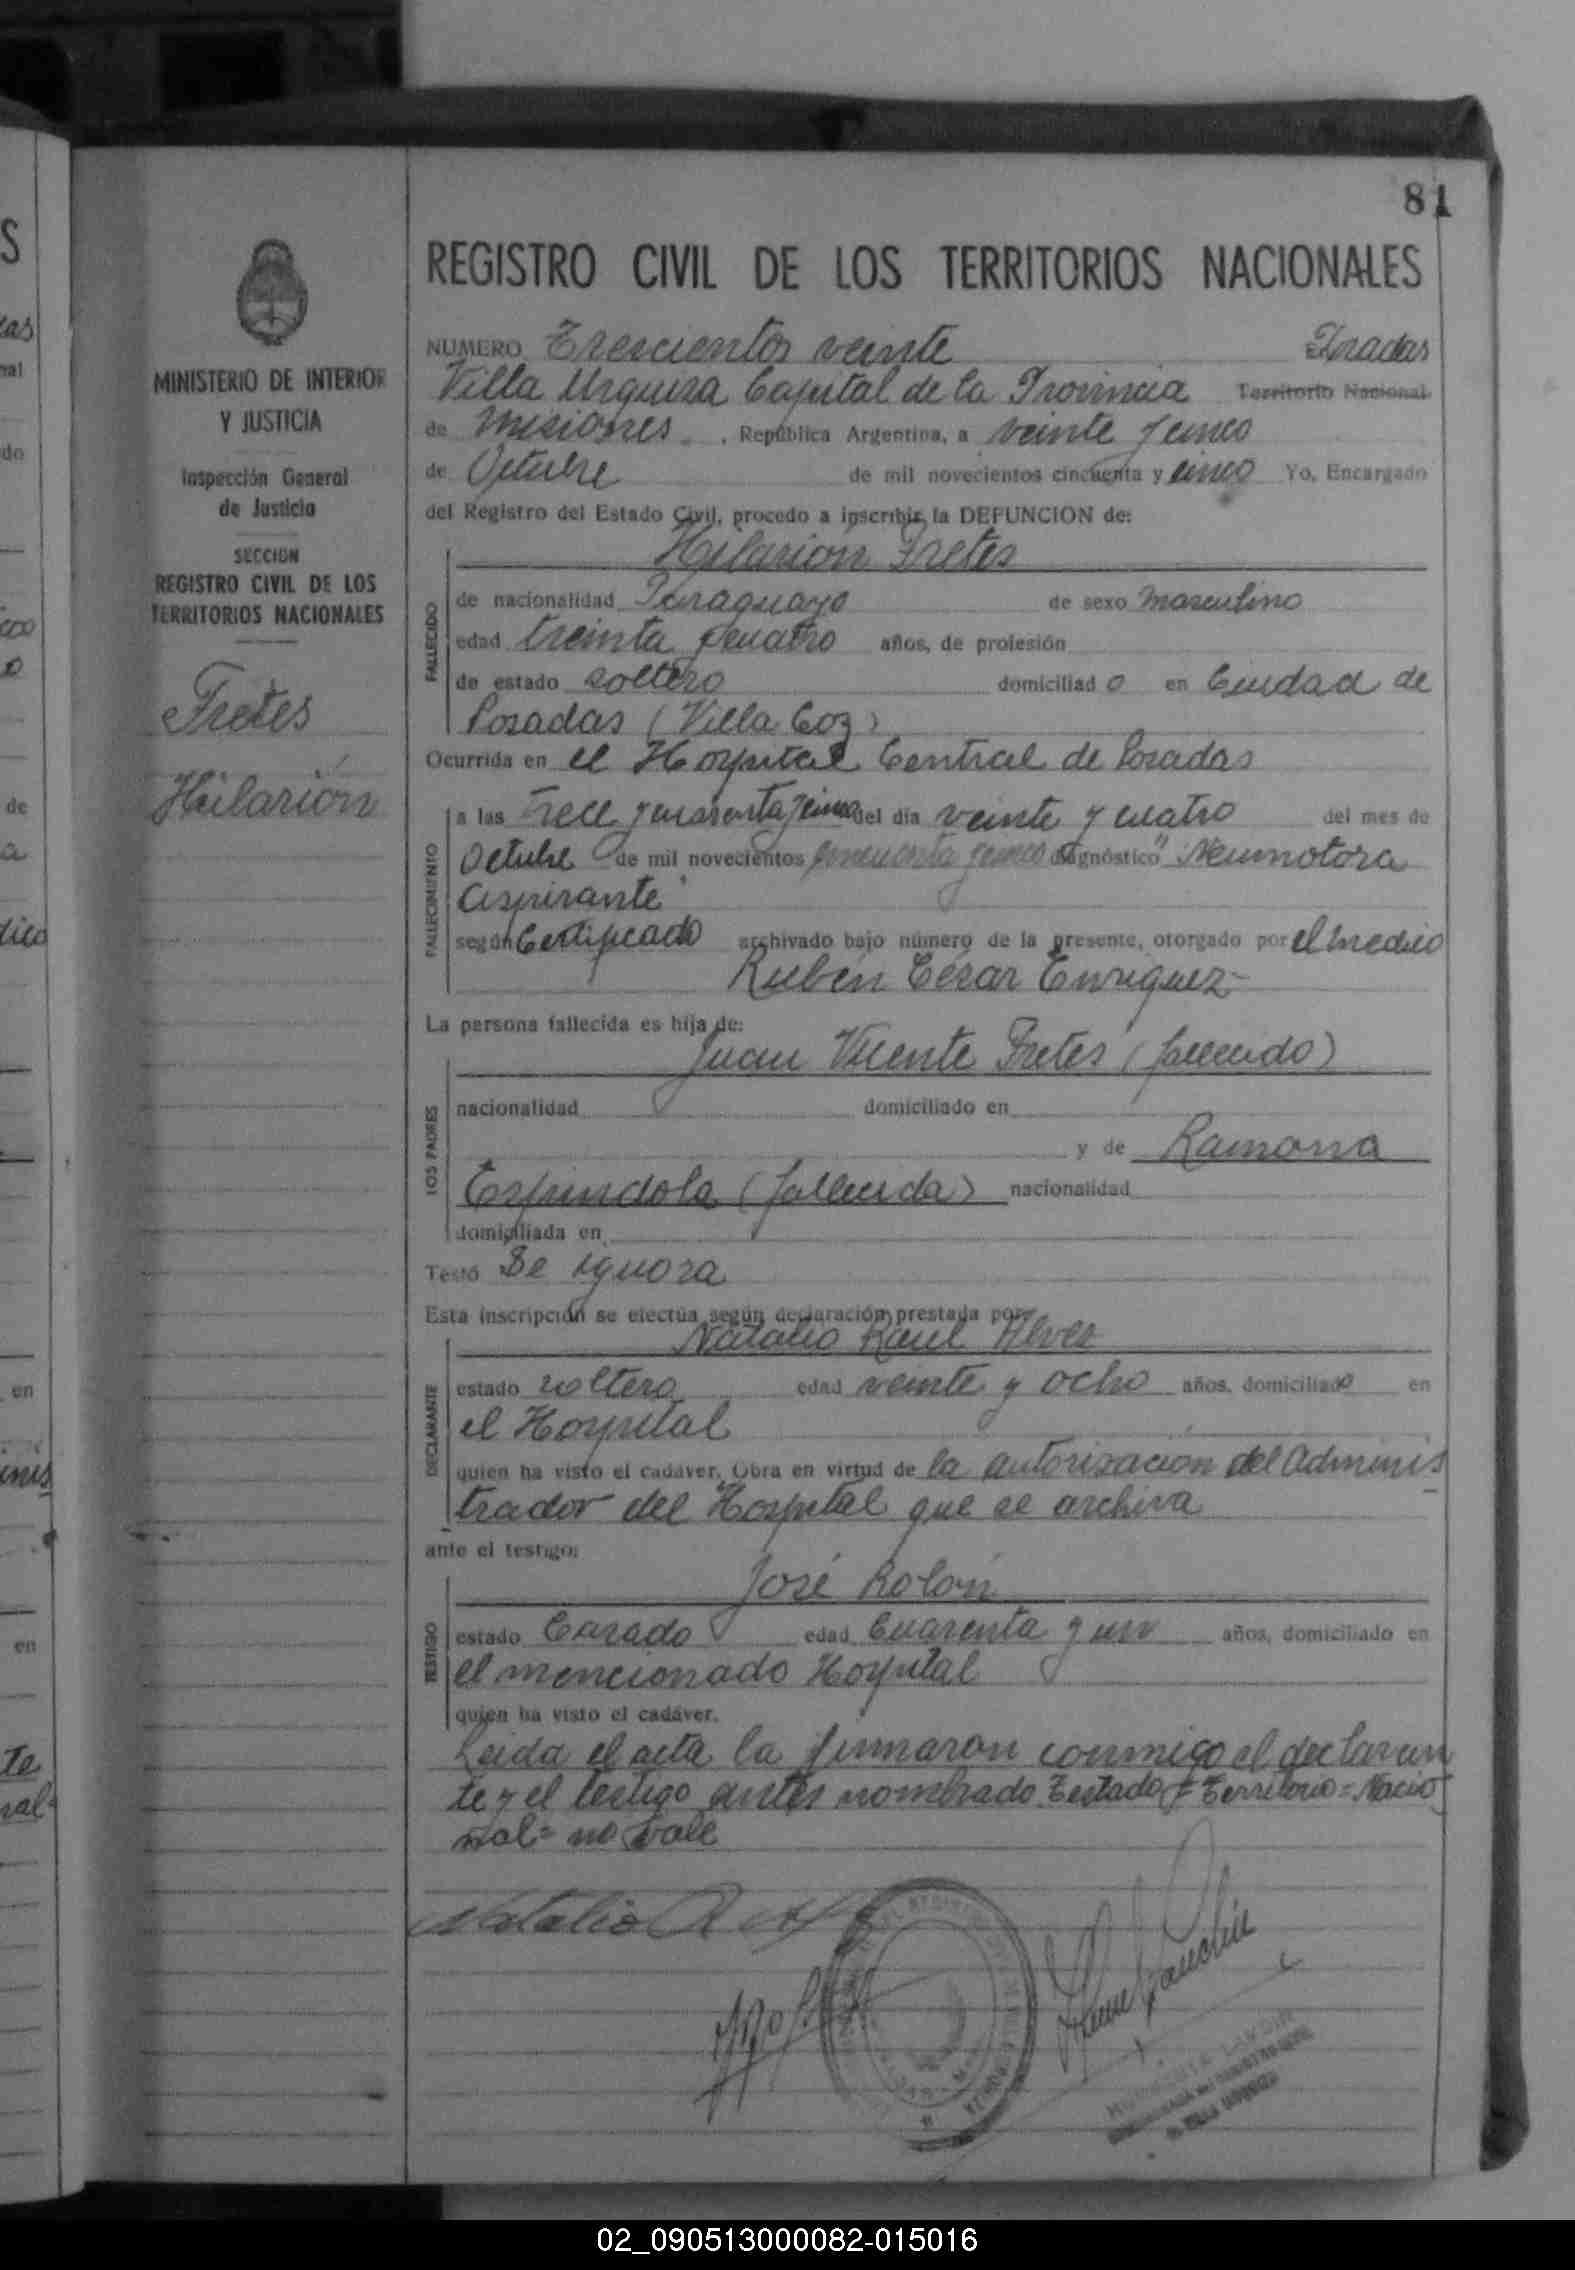 81
REGISTRO CIVIL DE LOS TERRITORIOS NACIONALES
MINISTERIO DE INTERIOR
Y JUSTICIA
Inspección General
de Justicia
SECCION
REGISTRO CIVIL DE LOS
TERRITORIOS NACIONALES
Fretes
Hilarión
NUMERO Trescientos veinte Posadas
Villa Urquiza Capital de la Provincia Territorio Nacional
de Misiones, República Argentina, a veinte y cinco
de Octubre de mil novecientos cincuenta y cinco Yo, Encargado
del Registro del Estado Civil, procedo a inscribir la DEFUNCION de:
Hilarión Fretes
FALLECIDO
de nacionalidad Paraguayo de sexo masculino
edad treinta y cuatro años, de profesión
de estado soltero domiciliado en Ciudad de
Posadas (Villa Coz)
Ocurrida en el Hospital Central de Posadas
FALLECIMIENTO
a las Trece y cuarenta y cinco del día veinte y cuatro del mes de
Octubre de mil novecientos cincuenta y cinco diagnóstico "Neumotorax
aspirante"
según Certificado archivado bajo número de la presente, otorgado por el medico
Rubén César Enriquez
La persona fallecida es hija de:
Juan Vicente Fretes (fallecido)
LOS PADRES
nacionalidad domiciliado en
y de Ramona
Espindola (fallecida) nacionalidad
domiciliada en
Testó Se ignora
Esta inscripción se efectúa según declaración prestada por:
Natalio Raul Alvez
DECLARANTE
estado soltero edad veinte y ocho años, domiciliado en
el Hospital
quien ha visto el cadáver. Obra en virtud de la autorización del Adminis
trador del Hospital que se archiva
ante el testigo:
José Rolón
TESTIGO
estado Casado edad Cuarenta y un años, domiciliado en
el mencionado Hospital
quien ha visto el cadáver.
Leida el acta la firmaron conmigo el declaran
te y el testigo antes nombrado. Testado = Territorio = Nacio
nal = no vale
Natalio R
02_090513000082-015016